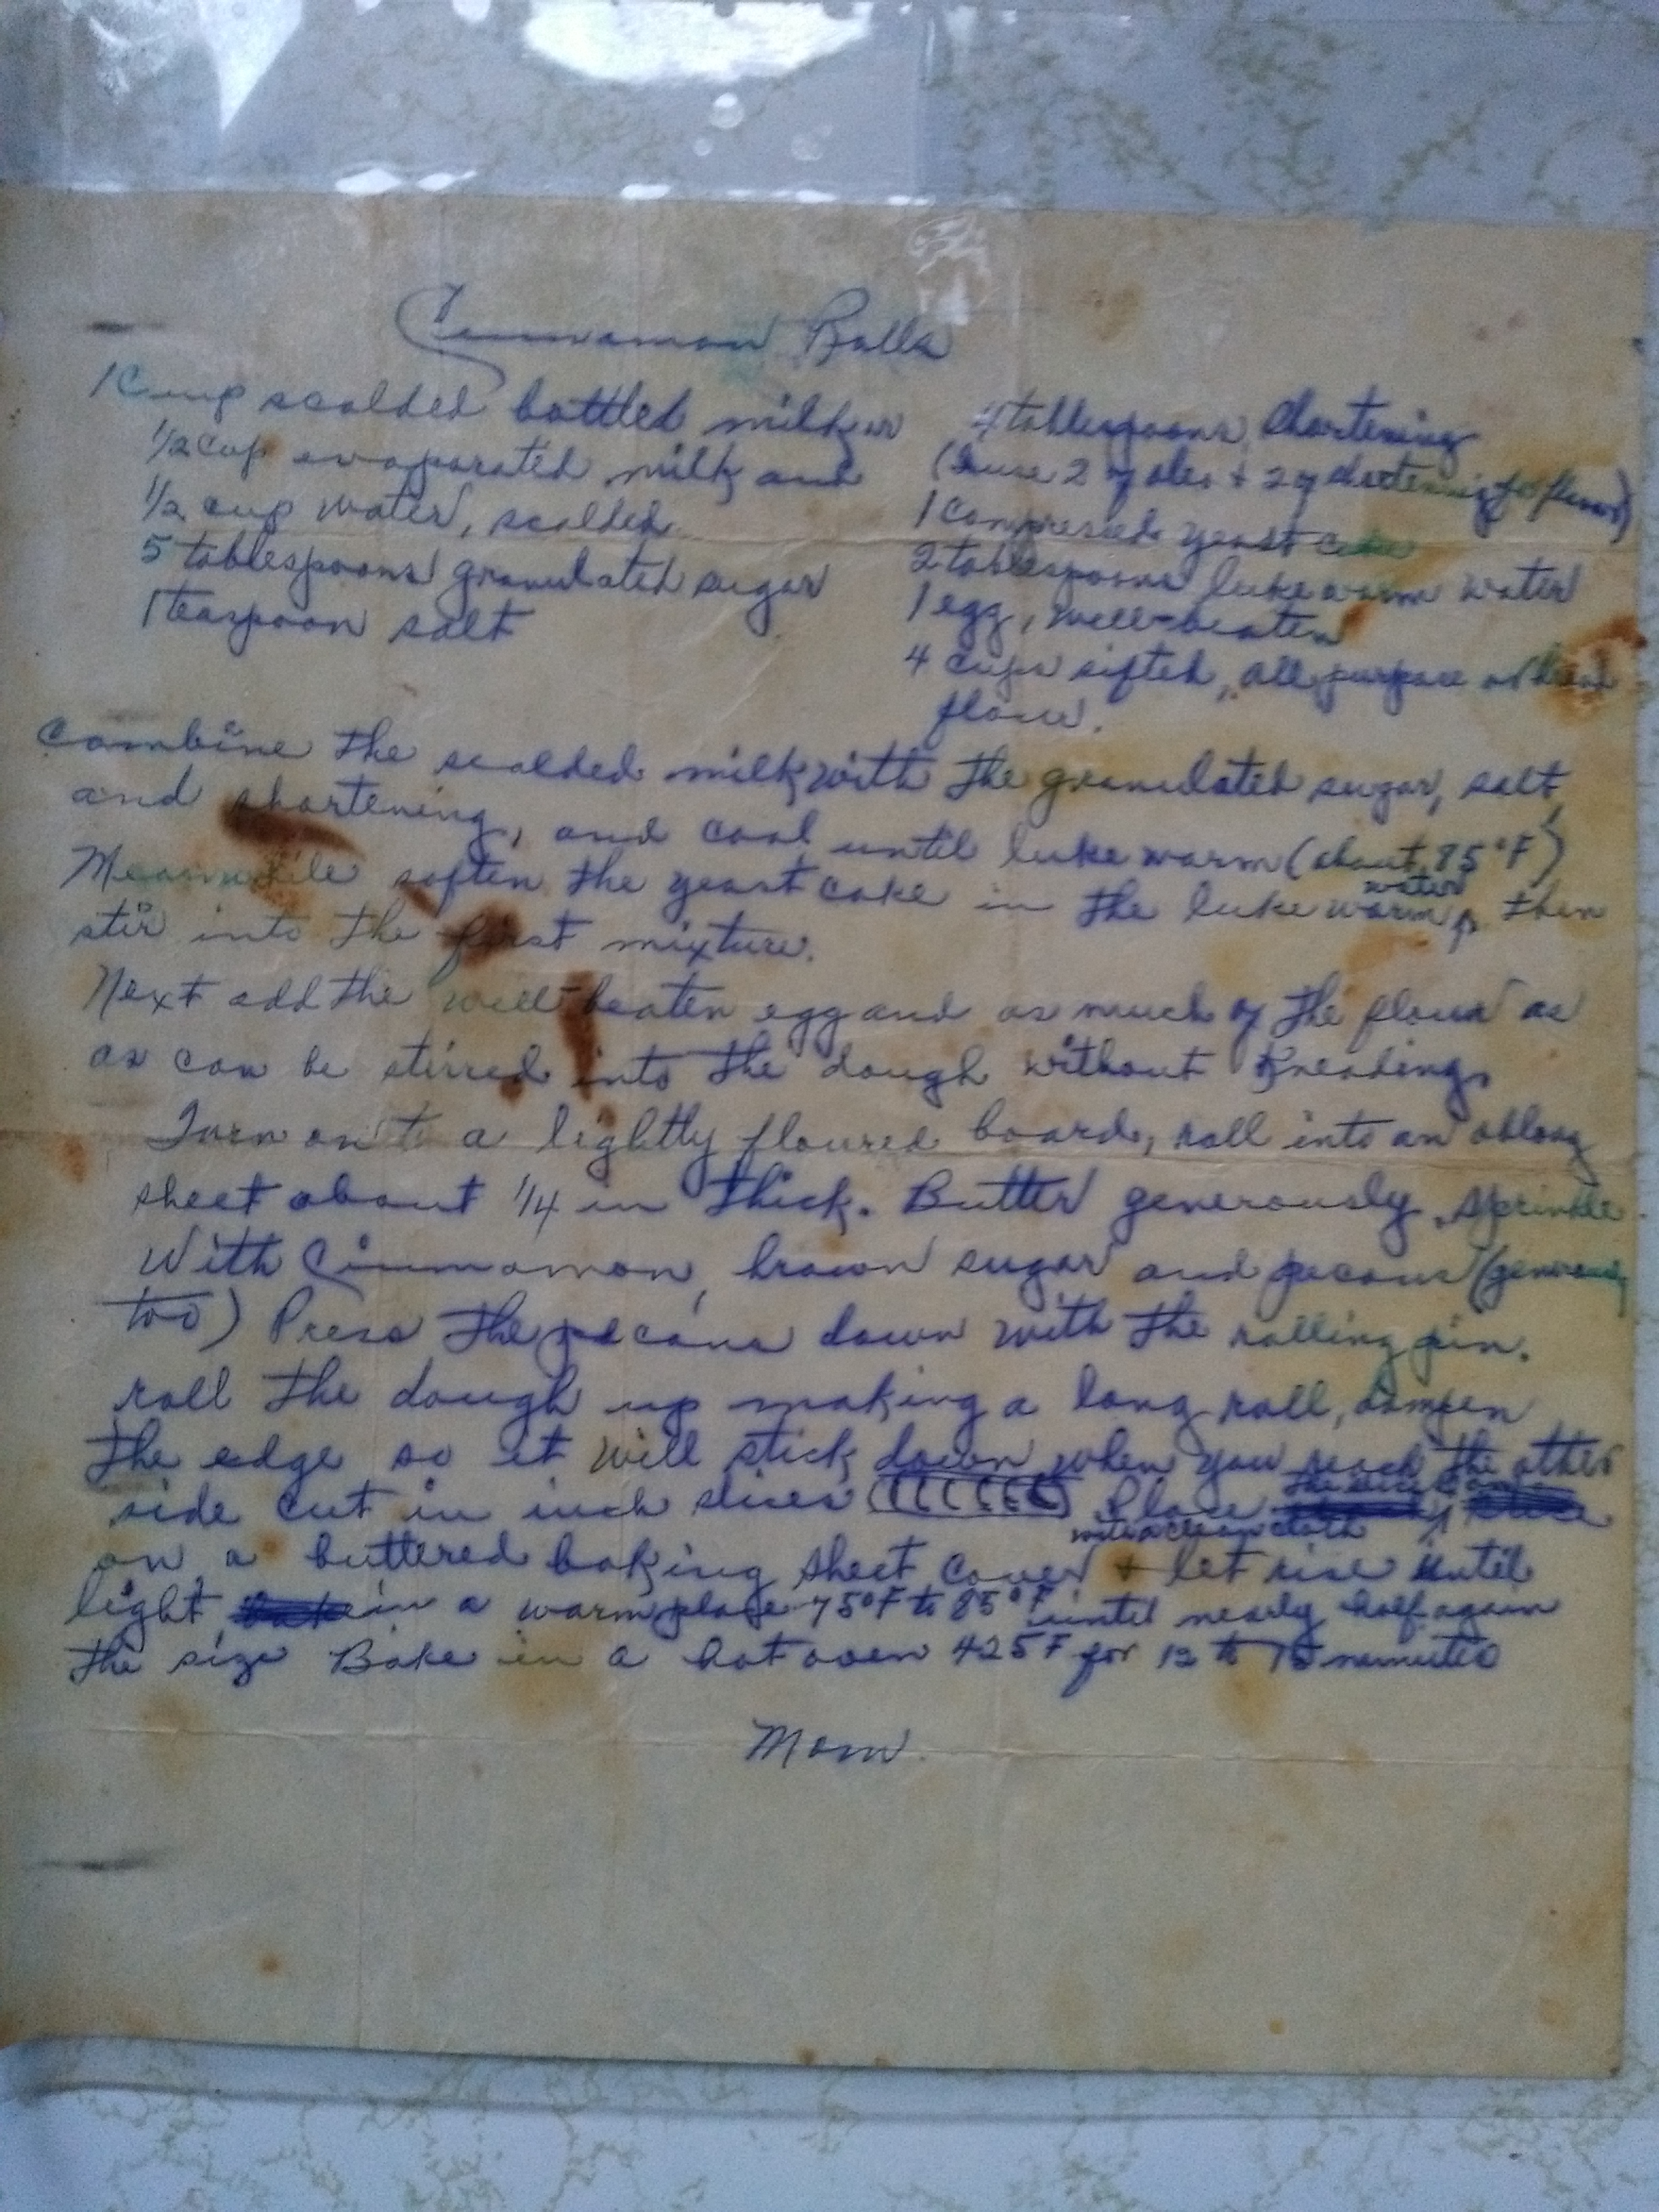 Cinnamon Rolls
1 Cup scalded bottled milk or
1/2 cup evaporated milk and
1/2 cup water, scalded
5 tablespoons granulated sugar
1 teaspoon salt
4 tablespoons shortening
(I use 2 of oleo + 2 of shortening for flavor)
1 compressed yeast cake
2 tablespoons luke warm water
1 egg, well-beaten
4 cups sifted, all purpose or bread
flour.
Combine the scalded milk with the granulated sugar, salt,
and shortening, and cool until luke warm (about 85°F)
Meanwhile soften the yeast cake in the luke warm water, then
stir into the first mixture.
Next add the well-beaten egg and as much of the flour as
as can be stirred into the dough without Kneading.
Turn onto a lightly floured board, roll into an oblong
sheet about 1/4 in thick. Butter generously, sprinkle
With Cinnamon, brown sugar and pecans (generously
too) Press the pecans down with the rolling pin.
roll the dough up making a long roll, dampen
the edge so it will stick down when you reach the other
side cut in inch slices Place
on a buttered baking sheet cover with a clean cloth + let rise until
light in a warm place 75°F to 85°F until nearly half again
the size Bake in a hot oven 425 F for 12 to 15 minutes
Mom